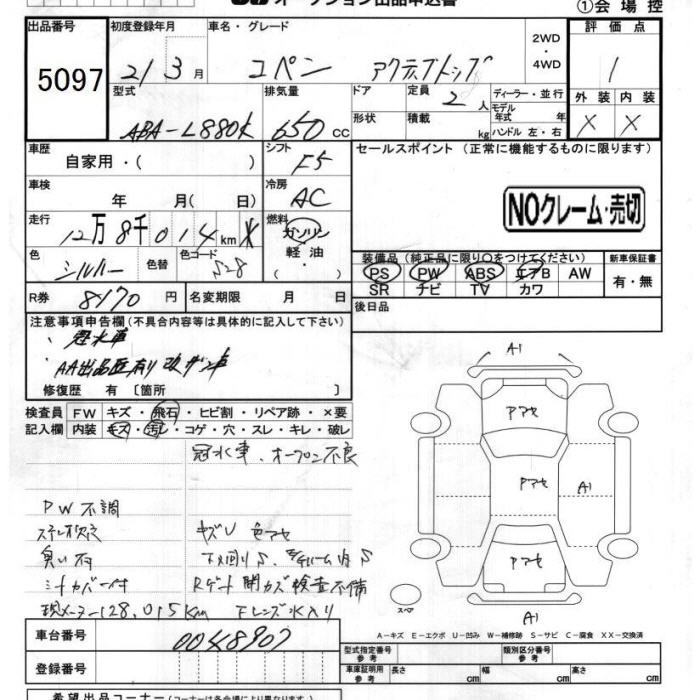 オークション出品申込書
①会場控
出品番号 初度登録年月 車名・グレード 2WD ・ 4WD 評価点
5097 21 3月 コペン アクティブトップ 1
型式 排気量 ドア 定員 2人 ディーラー・並行 外装 内装
ABA-L880K 650cc 形状 積載 kg モデル年式 年 ハンドル 左・右 X X
車歴 自家用・( ) シフト F5 セールスポイント (正常に機能するものに限ります)
車検 年 月( 日) 冷房 AC
NOクレーム・売切
走行 12万8千014km 燃料 ガソリン 軽油・( )
色 シルバー 色替 色コード S28
装備品 (純正品に限り○をつけてください) 新車保証書
PS PW ABS エアB AW 有・無
SR ナビ TV カワ
R券 8170円 名変期限 月 日 後日品
注意事項申告欄 (不具合内容等は具体的に記入して下さい)
・冠水車
・AA出品歴有り
修復歴 有 〔箇所 〕
検査員 FW キズ・飛石・ヒビ割・リペア跡・×要
記入欄 内装 キズ・汚れ・コゲ・穴・スレ・キレ・破レ
冠水車、オープン不良
PW不調
キズU 色アセ
臭い有
下回りS
検査不備
現メーター128,015km
A1
アマセ
アマセ
A1
アマセ
A1
スペア
A-キズ E-エクボ U-凹み W-補修跡 S-サビ C-腐食 XX-交換済
車台番号 0048907
登録番号
型式指定番号 参考 類別区分番号 参考
車庫証明用 参考 長さ cm 幅 cm 高さ cm
希望出品コーナー (コーナーは各会場により異なります)